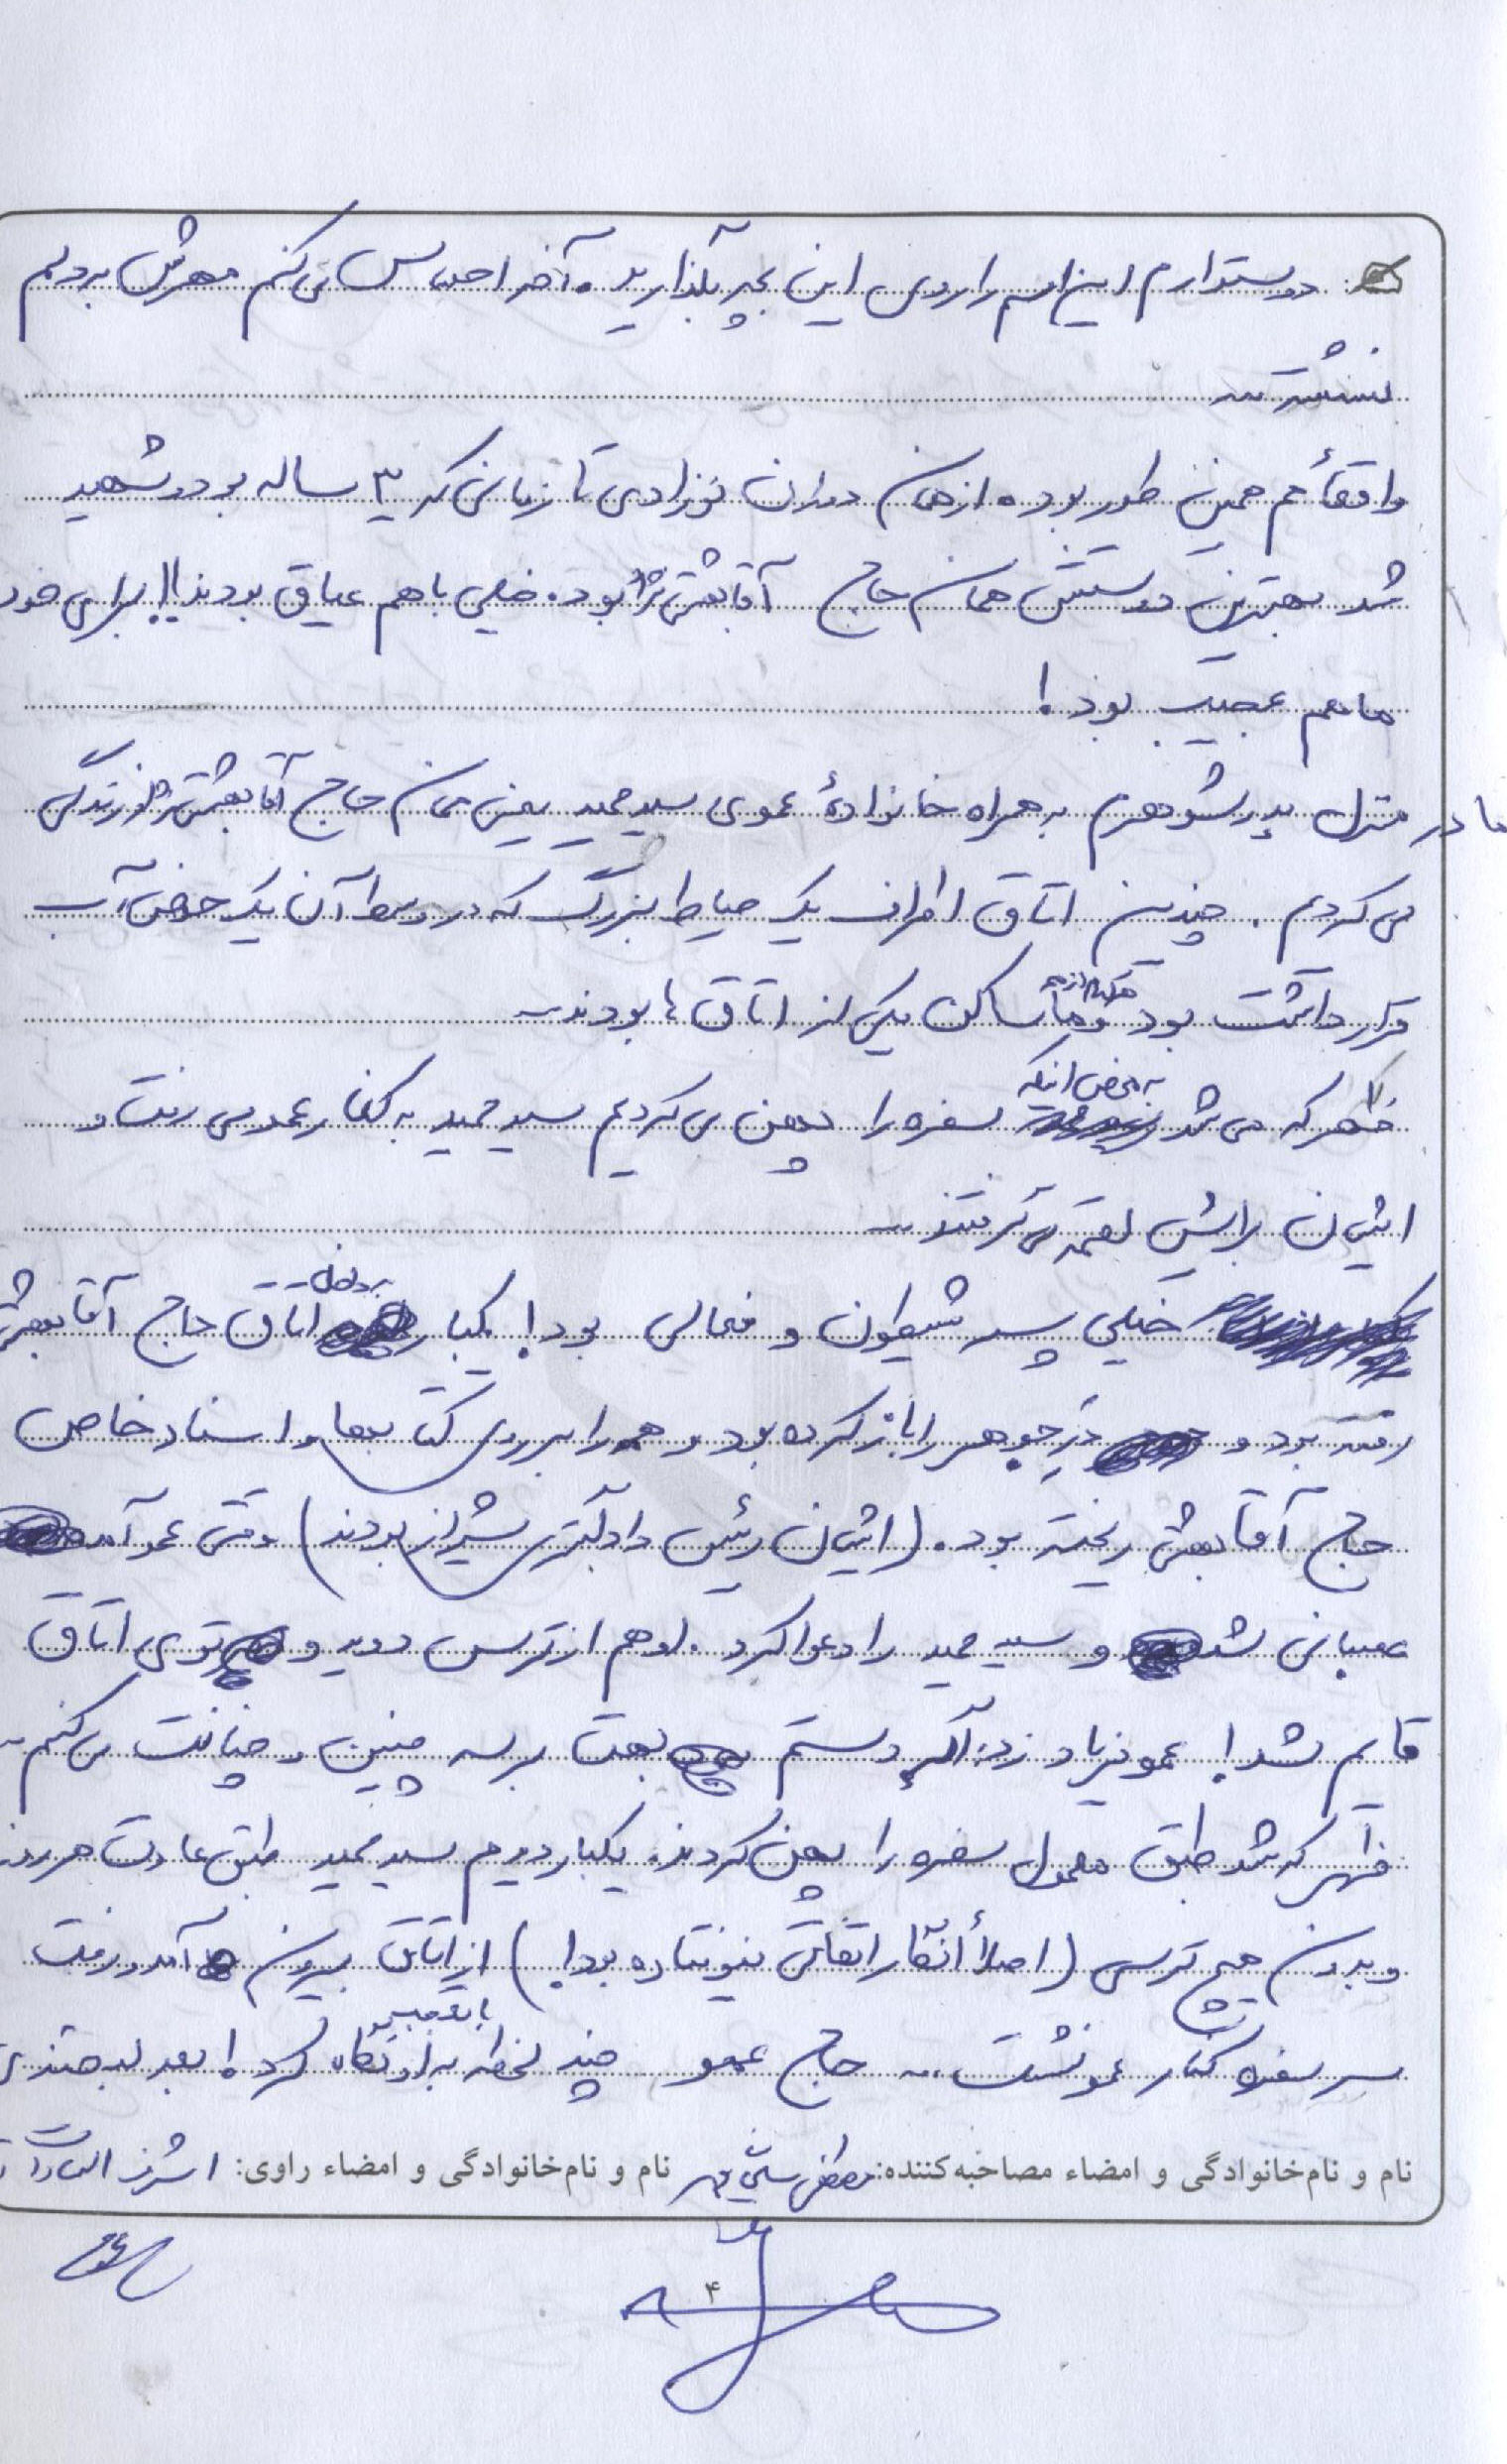 دوستدارم این اسم را روی این بچه بگذارید. آخر احساس می‌کنم مهرش بردلم
نشسته...
واقعاً هم همین طور بود. از همان دوران نوزادی تا زمانی که ۳ ساله بود و شهید
شد بهترین دوستش همان حاج آقا بهشتی‌نژاد بود. خیلی با هم عیاق بودند!! برای خود
ما هم عجیب بود!
ما در منزل پدرشوهرم به همراه خانوادهٔ عموی سید حمید یعنی همان حاج آقا بهشتی‌نژاد زندگی
می‌کردیم. چندین اتاق اطراف یک حیاط بزرگ که در وسط آن یک حوض آب
قرار داشت بود و ساکن یکی از اتاق‌ها بودند...
ظهر که می‌شد به محض اینکه سفره را پهن می‌کردیم سید حمید به کنار عموی رفت و
ایشان برایش لقمه می‌گرفتند...
خیلی پسر شیطون و فعالی بود! یکبار به داخل اتاق حاج آقا بهشتی
رفته بود و در جوهر را باز کرده بود و همه را بر روی کتاب‌ها و اسناد خاص
حاج آقا بهشتی ریخته بود. (ایشان رئیس دادگستری شیراز بودند) وقتی عمو آمد
عصبانی شد و سید حمید را دعوا کرد. او هم از ترس دوید و توی اتاق
قایم شد! عمو فریاد زد: اگه دستم بهت برسه چنین و چنانت می‌کنم...
ظهر که شد طبق معمول سفره را پهن کردند. یکبار دیدیم سید حمید طبق عادت هر روز
و بدون هیچ ترسی (اصلاً انگار اتفاقی نیوفتاده بود!) از اتاق بیرون آمد و رفت
سر سفره کنار عمو نشست... حاج عمو چند لحظه با تعجب به او نگاه کرد! بعد لبخندی
نام و نام‌خانوادگی و امضاء مصاحبه‌کننده: مصطفی نام و نام‌خانوادگی و امضاء راوی: اشرف السادات
۴